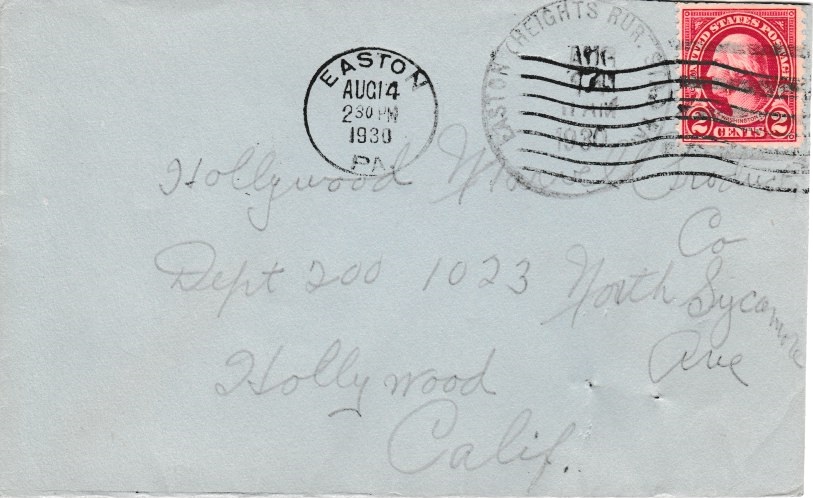 EASTON
AUG 14
2 30 PM
1930
PA
EASTON (HEIGHTS RUR. STA.)
AUG
11 AM
1930
UNITED STATES POSTAGE
WASHINGTON
2 CENTS 2
Hollywood Produc
Co
Dept 200 1023 North Sycamore
Ave
Hollywood
Calif.